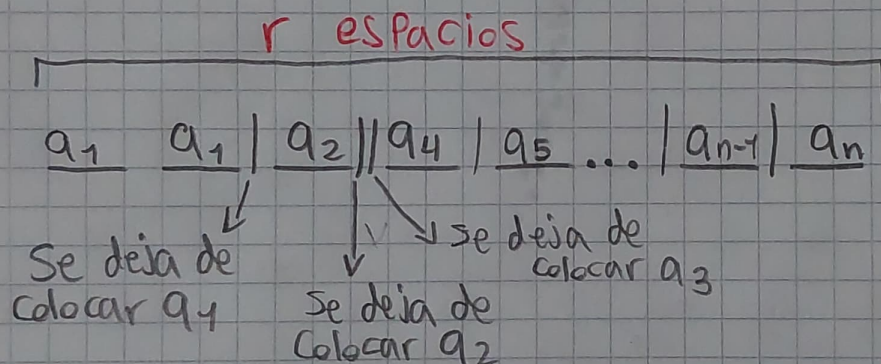 r espacios
a1 a1 | a2 || a4 | a5 ... | an-1 | an
Se deja de
colocar a1
Se deja de
colocar a2
se deja de
colocar a3